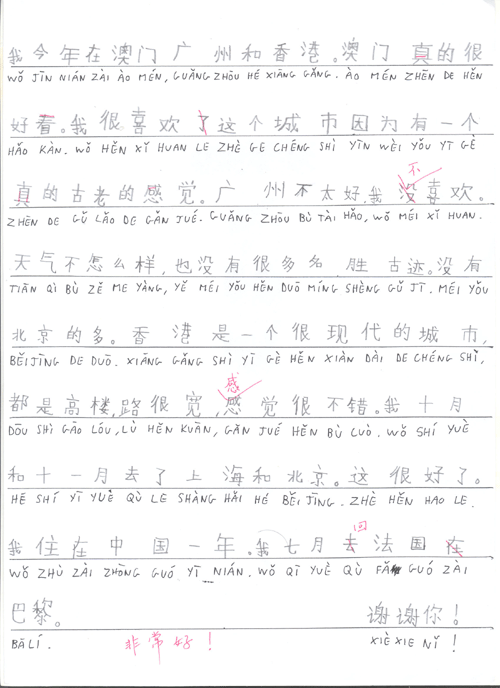 我今年在澳门广州和香港。澳门真的很
WǑ JĪN NIÁN ZÀI ÀO MÉN, GUǍNG ZHŌU HÉ XIĀNG GǍNG. ÀO MÉN ZHĒN DE HĚN
好看。我很喜欢了这个城市因为有一个
HǍO KÀN. WǑ HĚN XǏ HUAN LE ZHÈ GE CHÉNG SHÌ YĪN WÈI YǑU YĪ GÈ
不
真的古老的感觉。广州不太好,我没喜欢。
ZHĒN DE GǓ LǍO DE GǍN JUÉ. GUǍNG ZHŌU BÙ TÀI HǍO, WǑ MÉI XǏ HUAN.
天气不怎么样,也没有很多名胜古迹。没有
TIĀN QÌ BÙ ZĚ ME YÀNG, YĚ MÉI YǑU HĚN DUŌ MÍNG SHÈNG GǓ JĪ. MÉI YǑU
北京的多。香港是一个很现代的城市,
BĚIJĪNG DE DUŌ. XIĀNG GǍNG SHÌ YĪ GÈ HĚN XIÀN DÀI DE CHÉNG SHÌ,
感
都是高楼,路很宽,感觉很不错。我十月
DŌU SHÌ GĀO LÓU, LÙ HĚN KUĀN, GǍN JUÉ HĚN BÙ LUÒ. WǑ SHÍ YUÈ
和十一月去了上海和北京。这很好了。
HÉ SHÍ YĪ YUÈ QÙ LE SHÀNG HǍI HÉ BĚIJĪNG. ZHÈ HĚN HAO LE.
回
我住在中国一年。我七月去法国在
WǑ ZHÙ ZÀI ZHŌNG GUÓ YĪ NIÁN. WǑ QĪ YUÈ QÙ FǍ GUÓ ZÀI
巴黎。 谢谢你!
BĀLÍ. 非常好! XIÈ XIE NǏ !